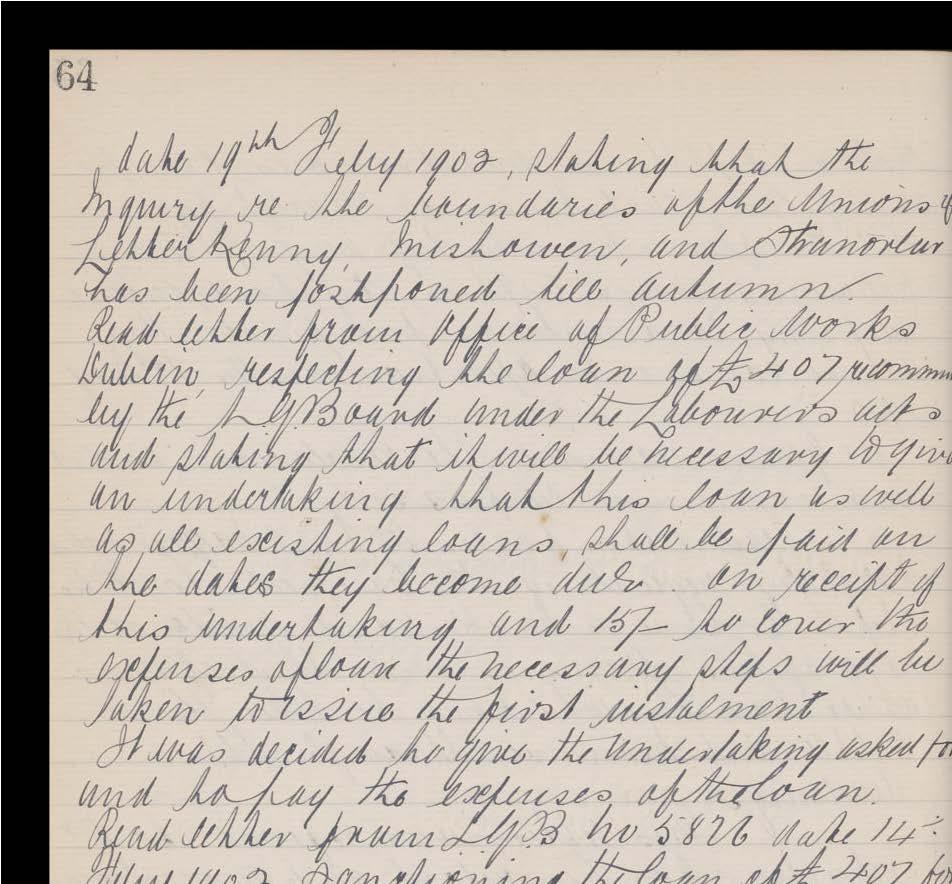 64
date 19th Feby 1902, stating that the
Inquiry re the boundaries of the Unions of
Letterkenny, Inishowen, and Stranorlar
has been postponed till autumn.
Read letter from Office of Public Works
Dublin, respecting the loan of £407 recomm
by the L G Board under the Labourers acts
and stating that it will be necessary to give
an undertaking that this loan as well
as all existing loans shall be paid on
the dates they become due. on receipt of
this undertaking and 15/- to cover the
expenses of loan the necessary steps will be
taken to issue the first instalment
It was decided to give the undertaking asked for
and to pay the expenses of the loan.
Read letter from LGB No 5876 date 14th
Feby 1902 Sanctioning the loan of £407